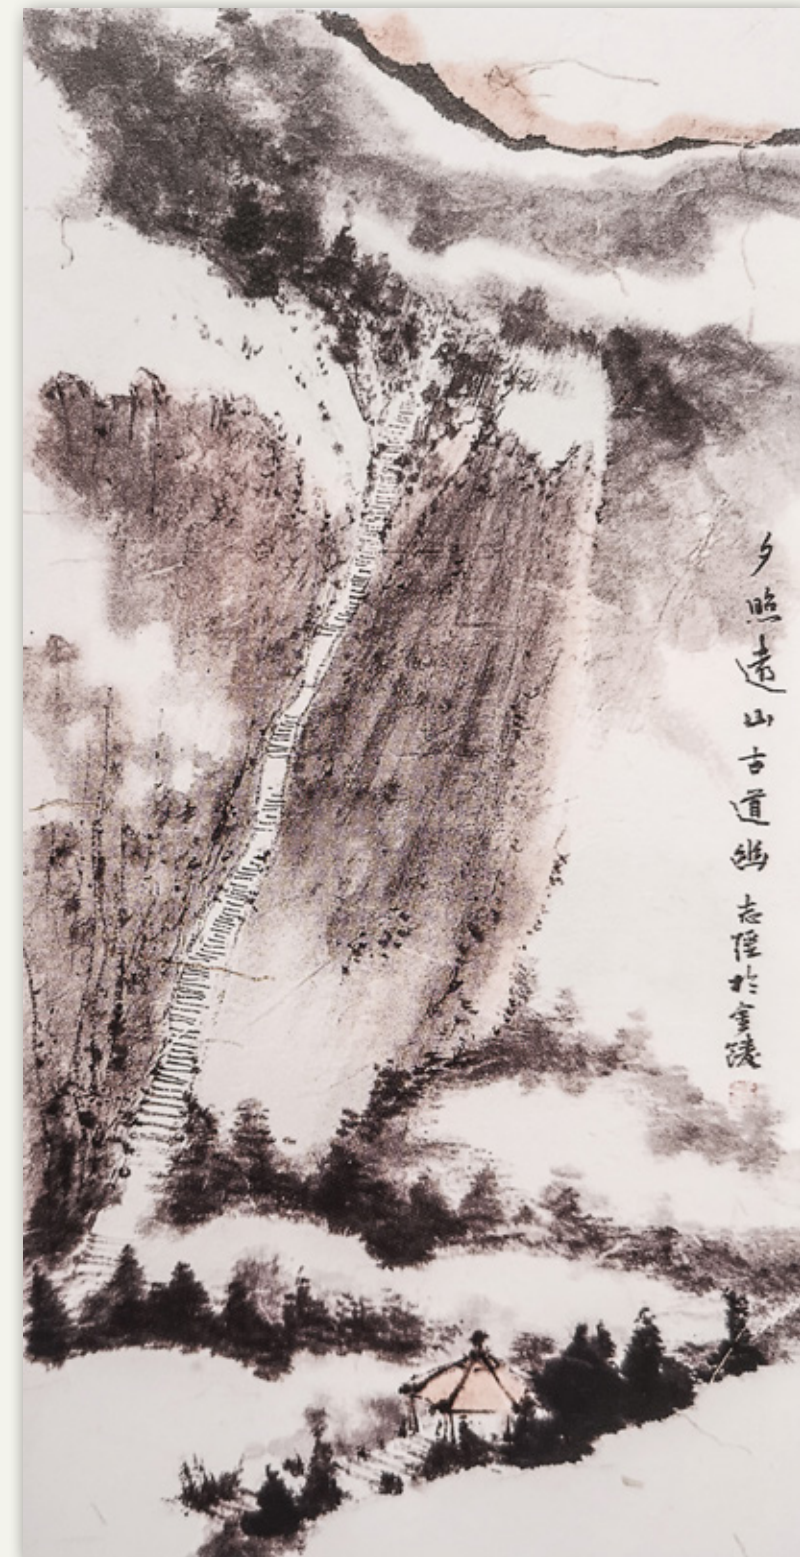 夕照遠山古道幽 志陞於金陵